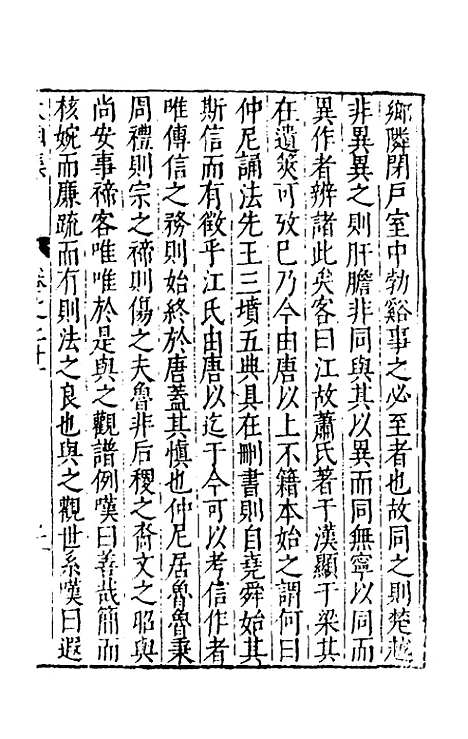 鄉隣閉戶室中勃谿事之必至者也故同之則楚越
非異異之則肝膽非同與其以異而同無寧以同而
異作者辨諸此矣客曰江故蕭氏著于漢顯于梁其
在遺筴可攷已乃今由唐以上不籍本始之謂何曰
仲尼誦法先王三墳五典具在刪書則自堯舜始其
斯信而有徵乎江氏由唐以迄于今可以考信作者
唯傳信之務則始終於唐蓋其慎也仲尼居魯魯秉
周禮則宗之禘則傷之夫魯非后稷之裔文之昭與
尚安事禘客唯唯於是與之觀譜例嘆曰善哉簡而
核婉而廉疏而有則法之良也與之觀世系嘆曰遐
集
卷之二十